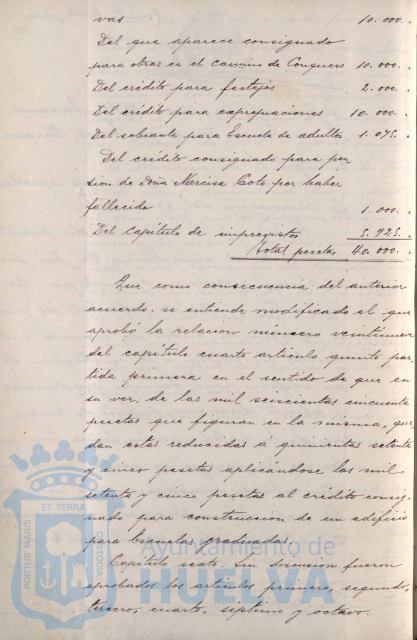 vas 10.000.
Del que aparece consignado
para obras en el camino de Conquero 10.000.
Del crédito para festejos 2.000.
Del crédito para expropiaciones 10.000.
Del sobrante para Escuela de adultos 1.075.
Del crédito consignado para pen-
sion de Doña Narcisa Coto por haber
fallecido 1.000.
Del Capítulo de imprevistos 5.925.
Total pesetas 40.000.
Que como consecuencia del anterior
acuerdo, se entiende modificado el que
aprobó la relacion número veintinueve
del capítulo cuarto artículo quinto par-
tida primera en el sentido de que en
su vez, de las mil seiscientas cincuenta
pesetas que figuran en la misma, que-
dan estas reducidas á quinientas setenta
y cinco pesetas aplicándose las mil
setenta y cinco pesetas al crédito consig-
nado para construccion de un edificio
para Escuelas graduadas.
Capítulo sexto. Sin discusion fueron
aprobados los artículos primero, segundo,
tercero, cuarto, septimo y octavo.
PORTUS MARIS ET TERRAE CUSTODIA
Ayuntamiento de
HUELVA